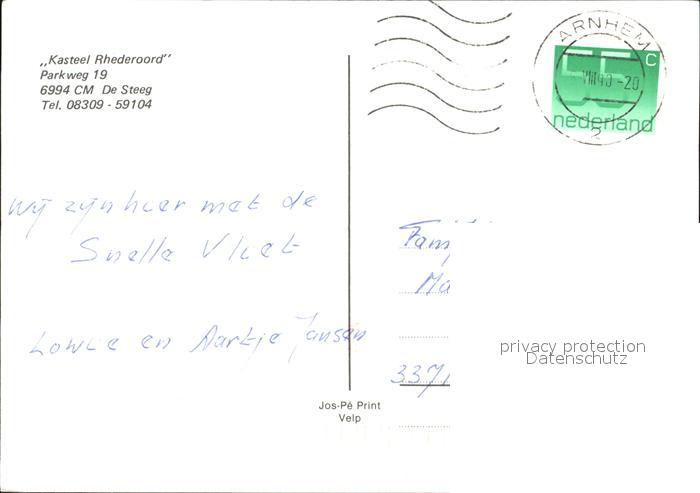 „Kasteel Rhederoord”
Parkweg 19
6994 CM De Steeg
Tel. 08309 - 59104
ARNHEM
55 c
VIII 90 -20
nederland
2
Wij zijn hier met de
Snelle Vliet
Lowie en Aartje Jansen
Fam
Ma
3371
privacy protection
Datenschutz
Jos-Pé Print
Velp